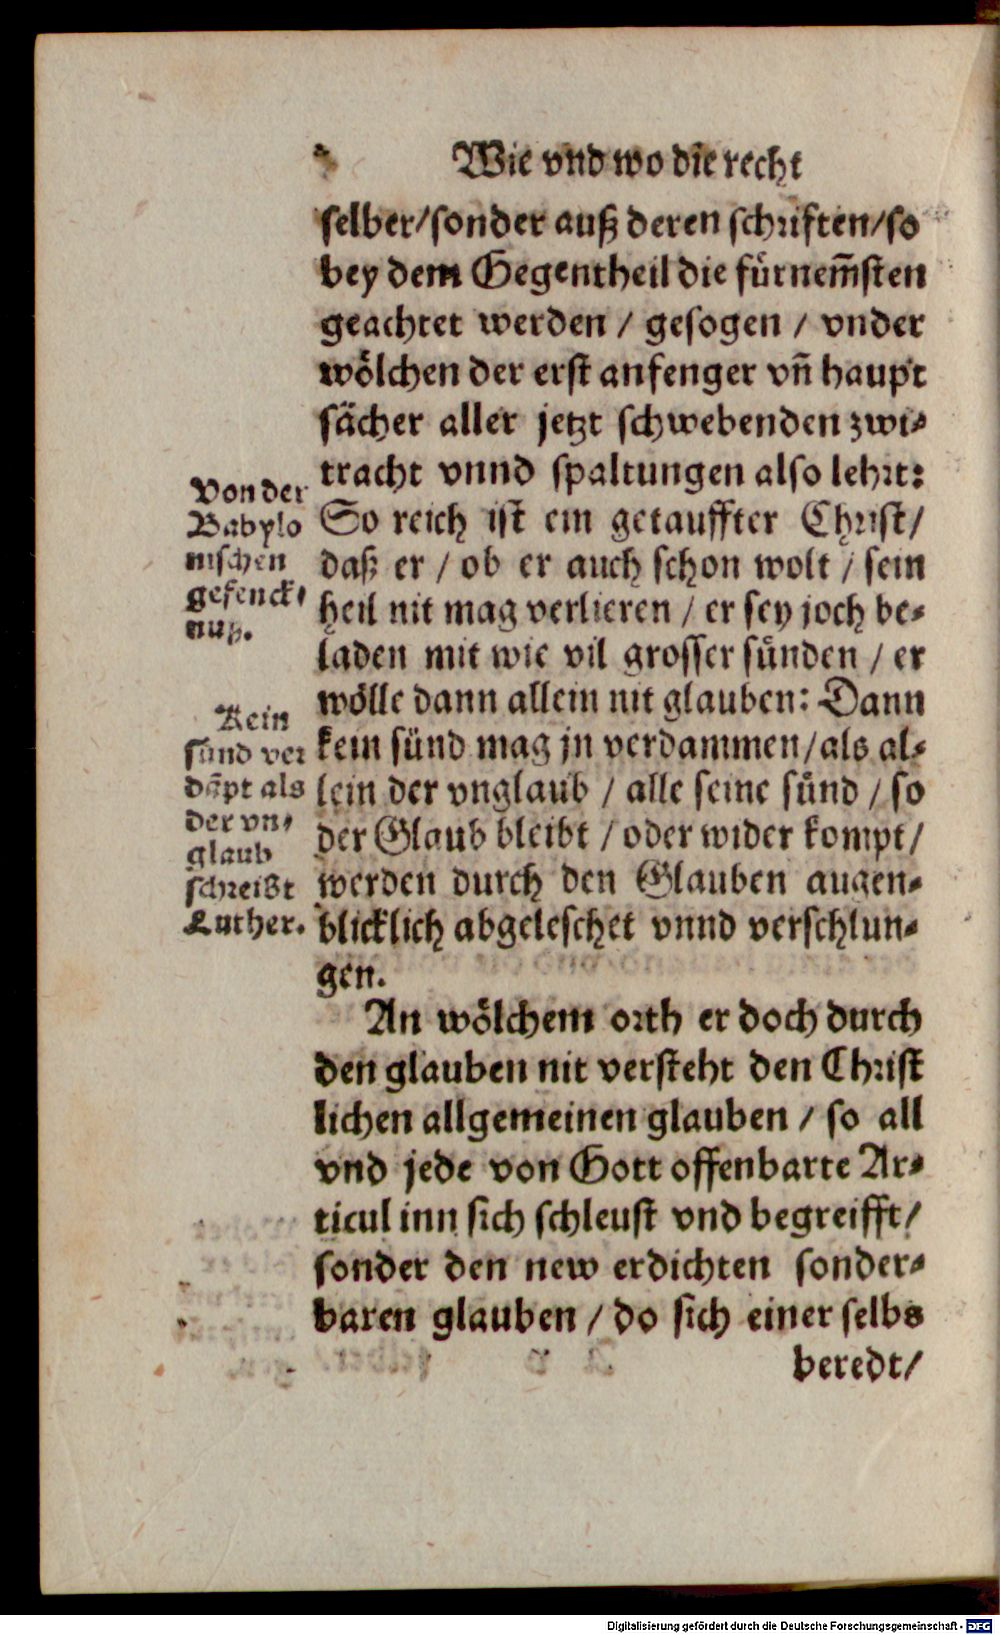 Wie vnd wo die recht
selber/sonder auß deren schriften/so
bey dem Gegentheil die fürnem̃sten
geachtet werden / gesogen / vnder
wölchen der erst anfenger vñ haupt
sächer aller jetzt schwebenden zwi-
tracht vnnd spaltungen also lehrt:
So reich ist ein getauffter Christ/
daß er / ob er auch schon wolt / sein
heil nit mag verlieren / er sey joch be-
laden mit wie vil grosser sünden / er
wölle dann allein nit glauben: Dann
kein sünd mag jn verdammen/als al-
lein der vnglaub / alle seine sünd / so
der Glaub bleibt / oder wider kompt/
werden durch den Glauben augen-
blicklich abgeleschet vnnd verschlun-
gen.
Von der
Babylo
nischen
gefenck-
nuß.
Kein
sünd ver
dãpt als
der vn-
glaub
schreibt
Luther.
An wölchem orth er doch durch
den glauben nit versteht den Christ
lichen allgemeinen glauben / so all
vnd jede von Gott offenbarte Ar-
ticul inn sich schleust vnd begreifft/
sonder den new erdichten sonder-
baren glauben / do sich einer selbs
beredt/
Digitalisierung gefördert durch die Deutsche Forschungsgemeinschaft - DFG